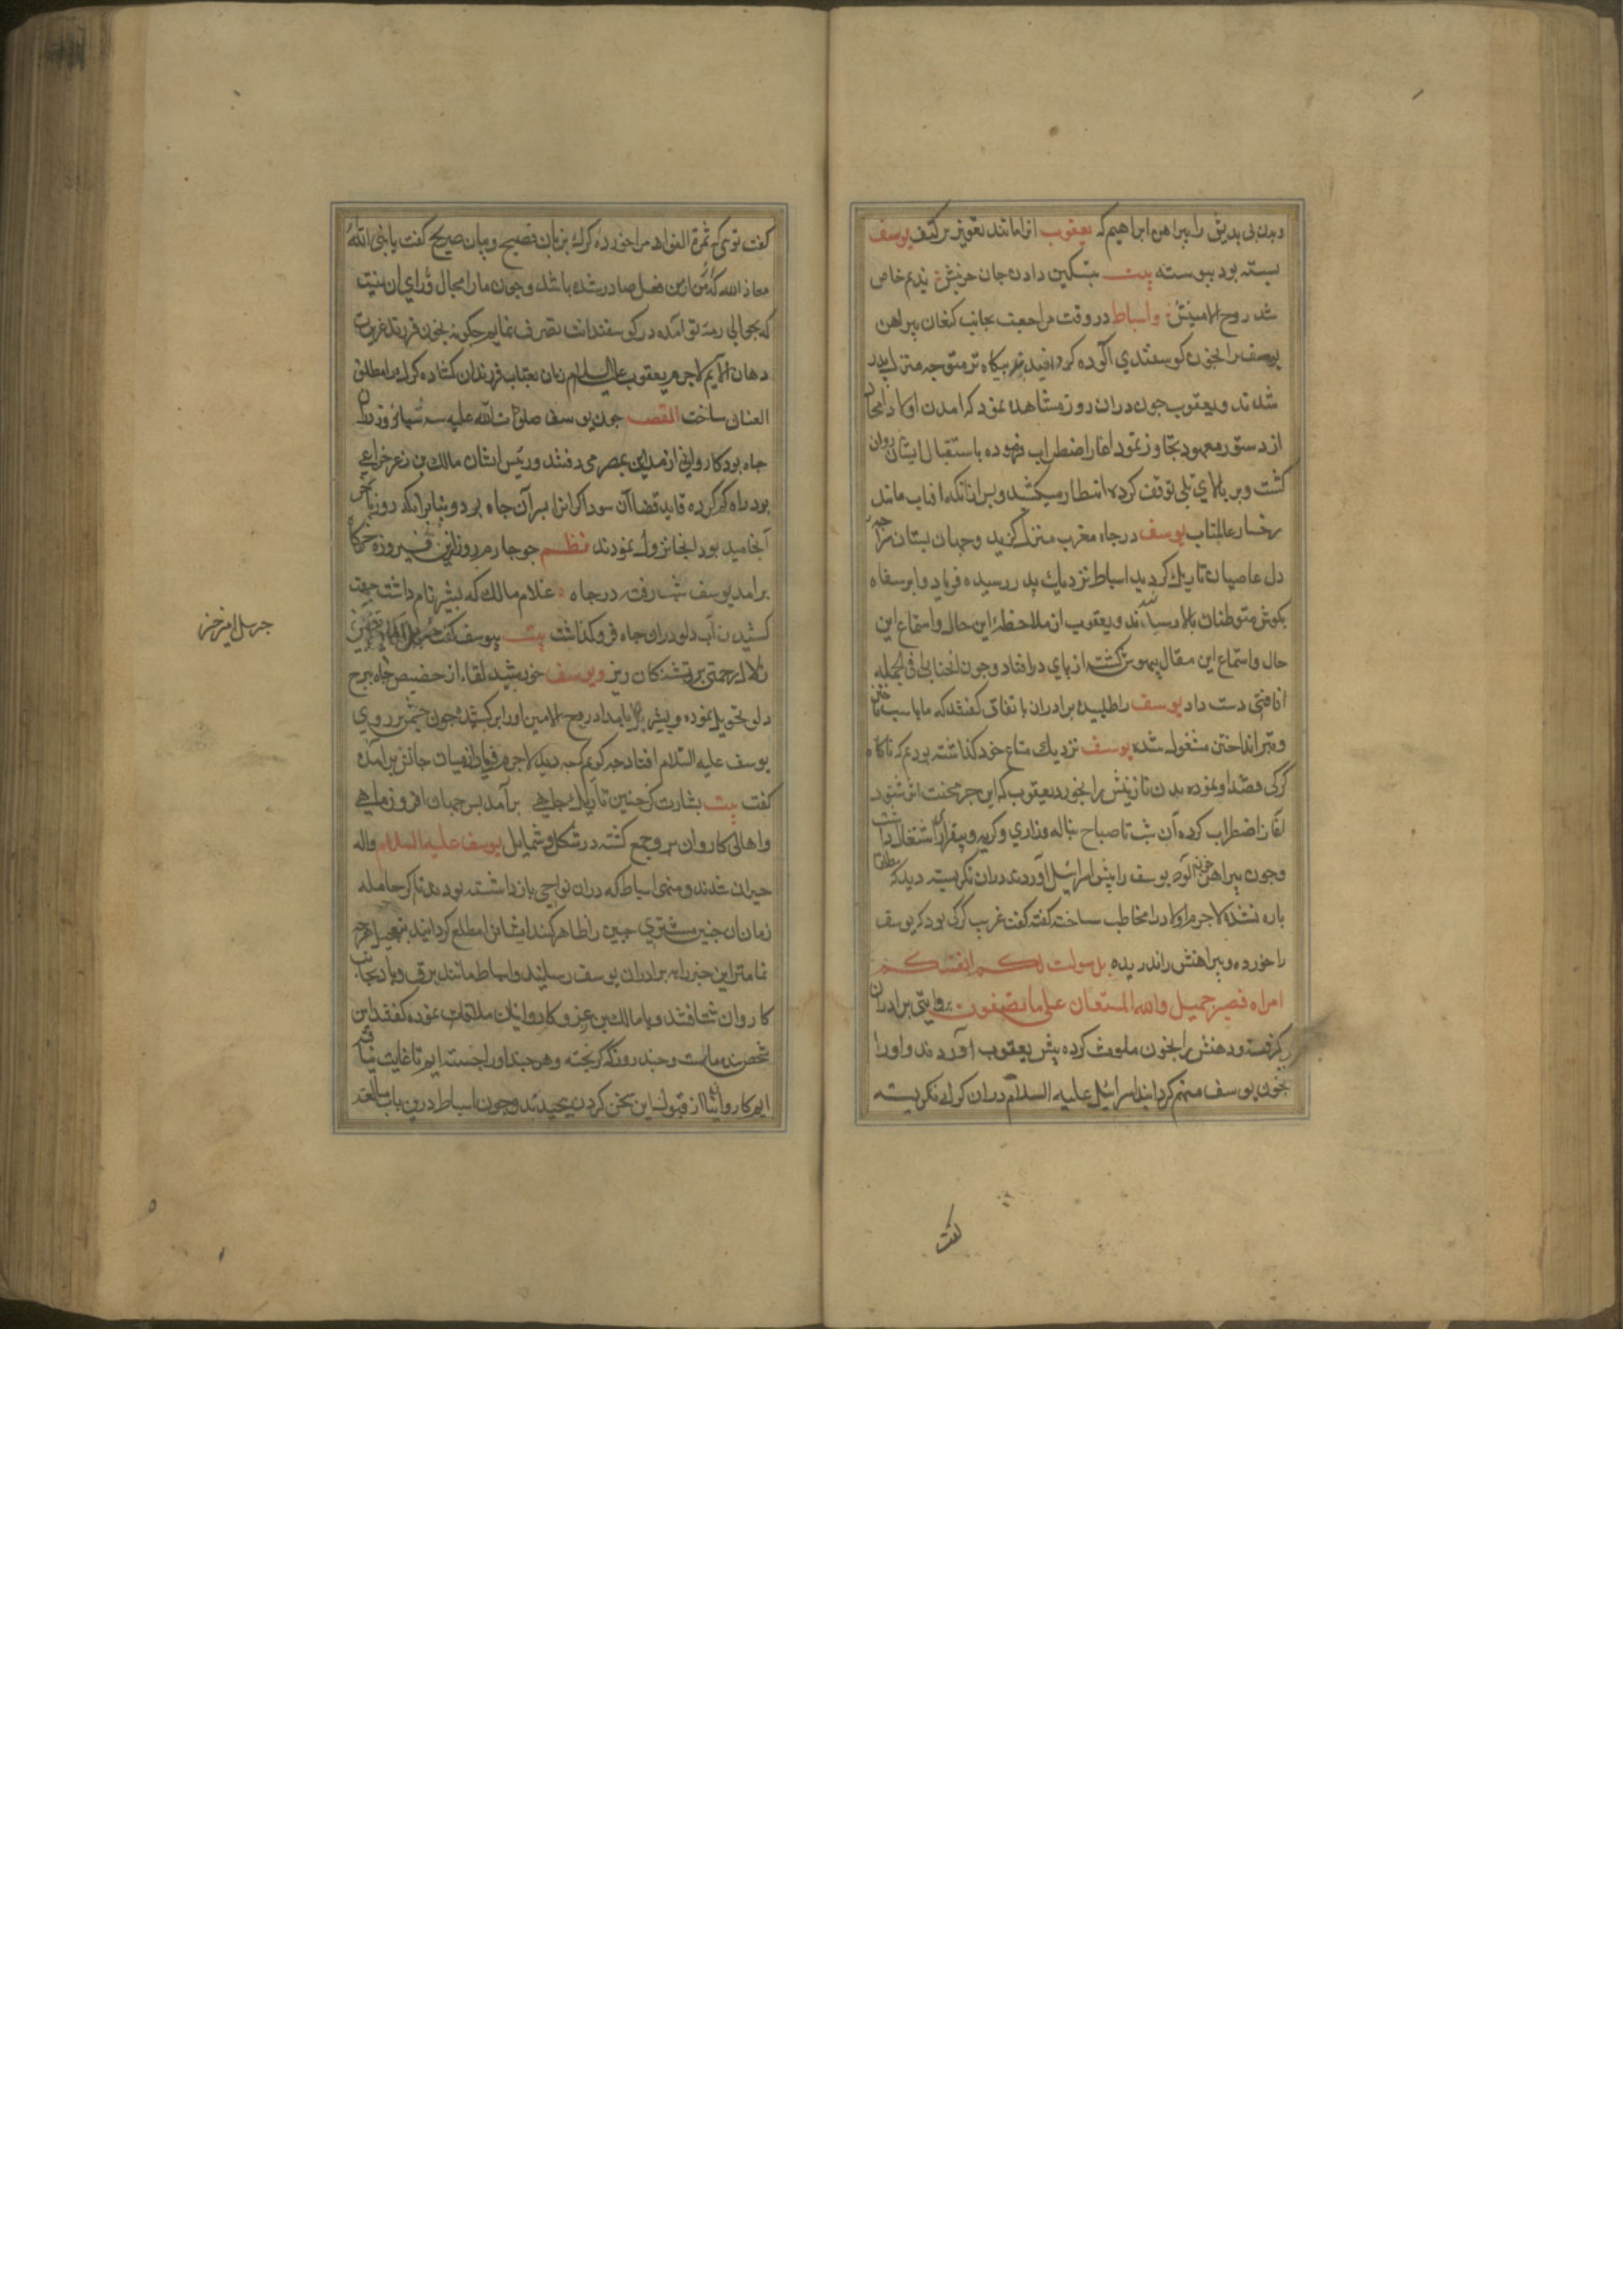 و بدن بی بدیش را پیراهن ابراهیم که یعقوب انرا مانند تعویذ بر کتف یوسف
بسته بود پیوسته بیت بتسکین دادن جان حزینش ندیم خاص
شد روح الامینش واسباط در وقت مراجعت بجانب کنعان پیراهن
یوسف را بخون کوسفندی آلوده کردانیدند بیکاه تر متوجه منزل پدر
شدند و یعقوب چون دران روز مشاهده نمود که امدن اولاد امجاد
از دستور معهود تجاوز نمود اغاز اضطراب فرموده باستقبال ایشان روان
کشت و بر بالای تلی توقف کرده انتظار میکشید و بس ازانکه افتاب مانند
رخسار عالمتاب یوسف در چاه مغرب منزل کزید و جهان بسان
دل عاصیان تاریک کردید اسباط نزدیک پدر رسیده فریاد وا یوسفاه
بکوش متوطنان بالا رسانیدند و یعقوب از ملاحظه این حال و استماع این
حال و استماع این مقال بیهوش کشته از پای درافتاد و چون انجناب را فی الجمله
افاقتی دست داد یوسف را طلبیده برادران باتفاق کفتند که ما باسب تاختن
و تیر انداختن مشغول شده یوسف نزدیک متاع خود کذاشته بودیم که ناکاه
کرکی قصد او نموده بدن نازنینش را بخورد یعقوب که این خبر محنت اثر شنود
آغاز اضطراب کرده آن شب تا صباح بناله وزاری و کریه و بیقراری اشتغال داشت
و چون پیراهن خون آلود یوسف را پیش اسرائیل آوردند دران نکریسته دید که مطلقا
پاره نشده لاجرم اولاد را مخاطب ساخته کفت غریب کرکی بود که یوسف
را خورده و پیراهنش را ندریده بل سولت لکم انفسکم
امرا فصبر جمیل والله المستعان علی ما تصفون بروایتی برادران
کرکی کرفته و دهنش را بخون ملوث کرده پیش یعقوب آوردند و اورا
بخون یوسف متهم کردانیدند اسرائیل علیه السلام دران کرک نکریسته
کفت
کفت توئی که ثمرة الفؤاد مرا خورده کرک بزبان فصیح و بیان صریح کفت یا نبی الله
معاذ الله که من این فعل صادر شده باشد و چون مارا مجال و رای ان نیست
که بحوالی رمه تو آمده در کوسفندانت تصرف نمایم چکونه بخون فرزند عزیزت
دهان آلایم لاجرم یعقوب علیه السلام زبان بعتاب فرزندان کشاده کرک را مطلق
العنان ساخت القصه چون یوسف صلوات الله علیه سه شبانروز دران
چاه بود کاروانی از مدین بمصر می رفتند و رئیس ایشان مالک بن زعر خزاعی
بود راه کم کرده قاید قضا آن سوداکرانرا بر آن چاه برد و بنا برانکه روز بآخر
آنجامیده بود انجا نزول نمودند نظم چو چارم روز ازین فیروزه خرکاه
برامد یوسف شب رفته در چاه غلام مالک که بشیر نام داشت جهت
کشیدن آب دلو دران چاه فروکذاشت بیت بیوسف کفت جبریل امین خیز
زلال رحمتی بر تشنکان ریز و یوسف خورشید لقا از حضیض چاه ببرج
دلو تحویل نموده و بشیر بامداد روح الامین اورا برکشیده چون چشمش بر روی
یوسف علیه السلام افتاد چه کویم که چه دید لاجرم فریاد از میان جانش برآمده
کفت بیت بشارت کز چنین تاریک چاهی برآمد بس جهان افروز ماهی
و اهالی کاروان بروجمع کشته در شکل و شمایل یوسف علیه السلام واله
حیران شدند و منهی اسباط که دران نواحی باز داشته بودند تا کر حامله
زمان ان چنین مشتری جبین را ظاهر کند ایشانرا مطلع کردانید بتعجیل هرچه
تمامتر این خبر را به برادران یوسف رسانید و اسباط مانند برق و باد بجانب
کاروان شتافتند و با مالک بن زعر و کاروانیان ملاقات نموده کفتند این
شخص بنده ماست و چند روز که کریخته و هر چند اورا جسته ایم تا غایت نیافته
ایم کاروانیان از قبول این سخن کردن پیچیدند و چون اسباط درین باب مبالغه
جبریل امین خیز